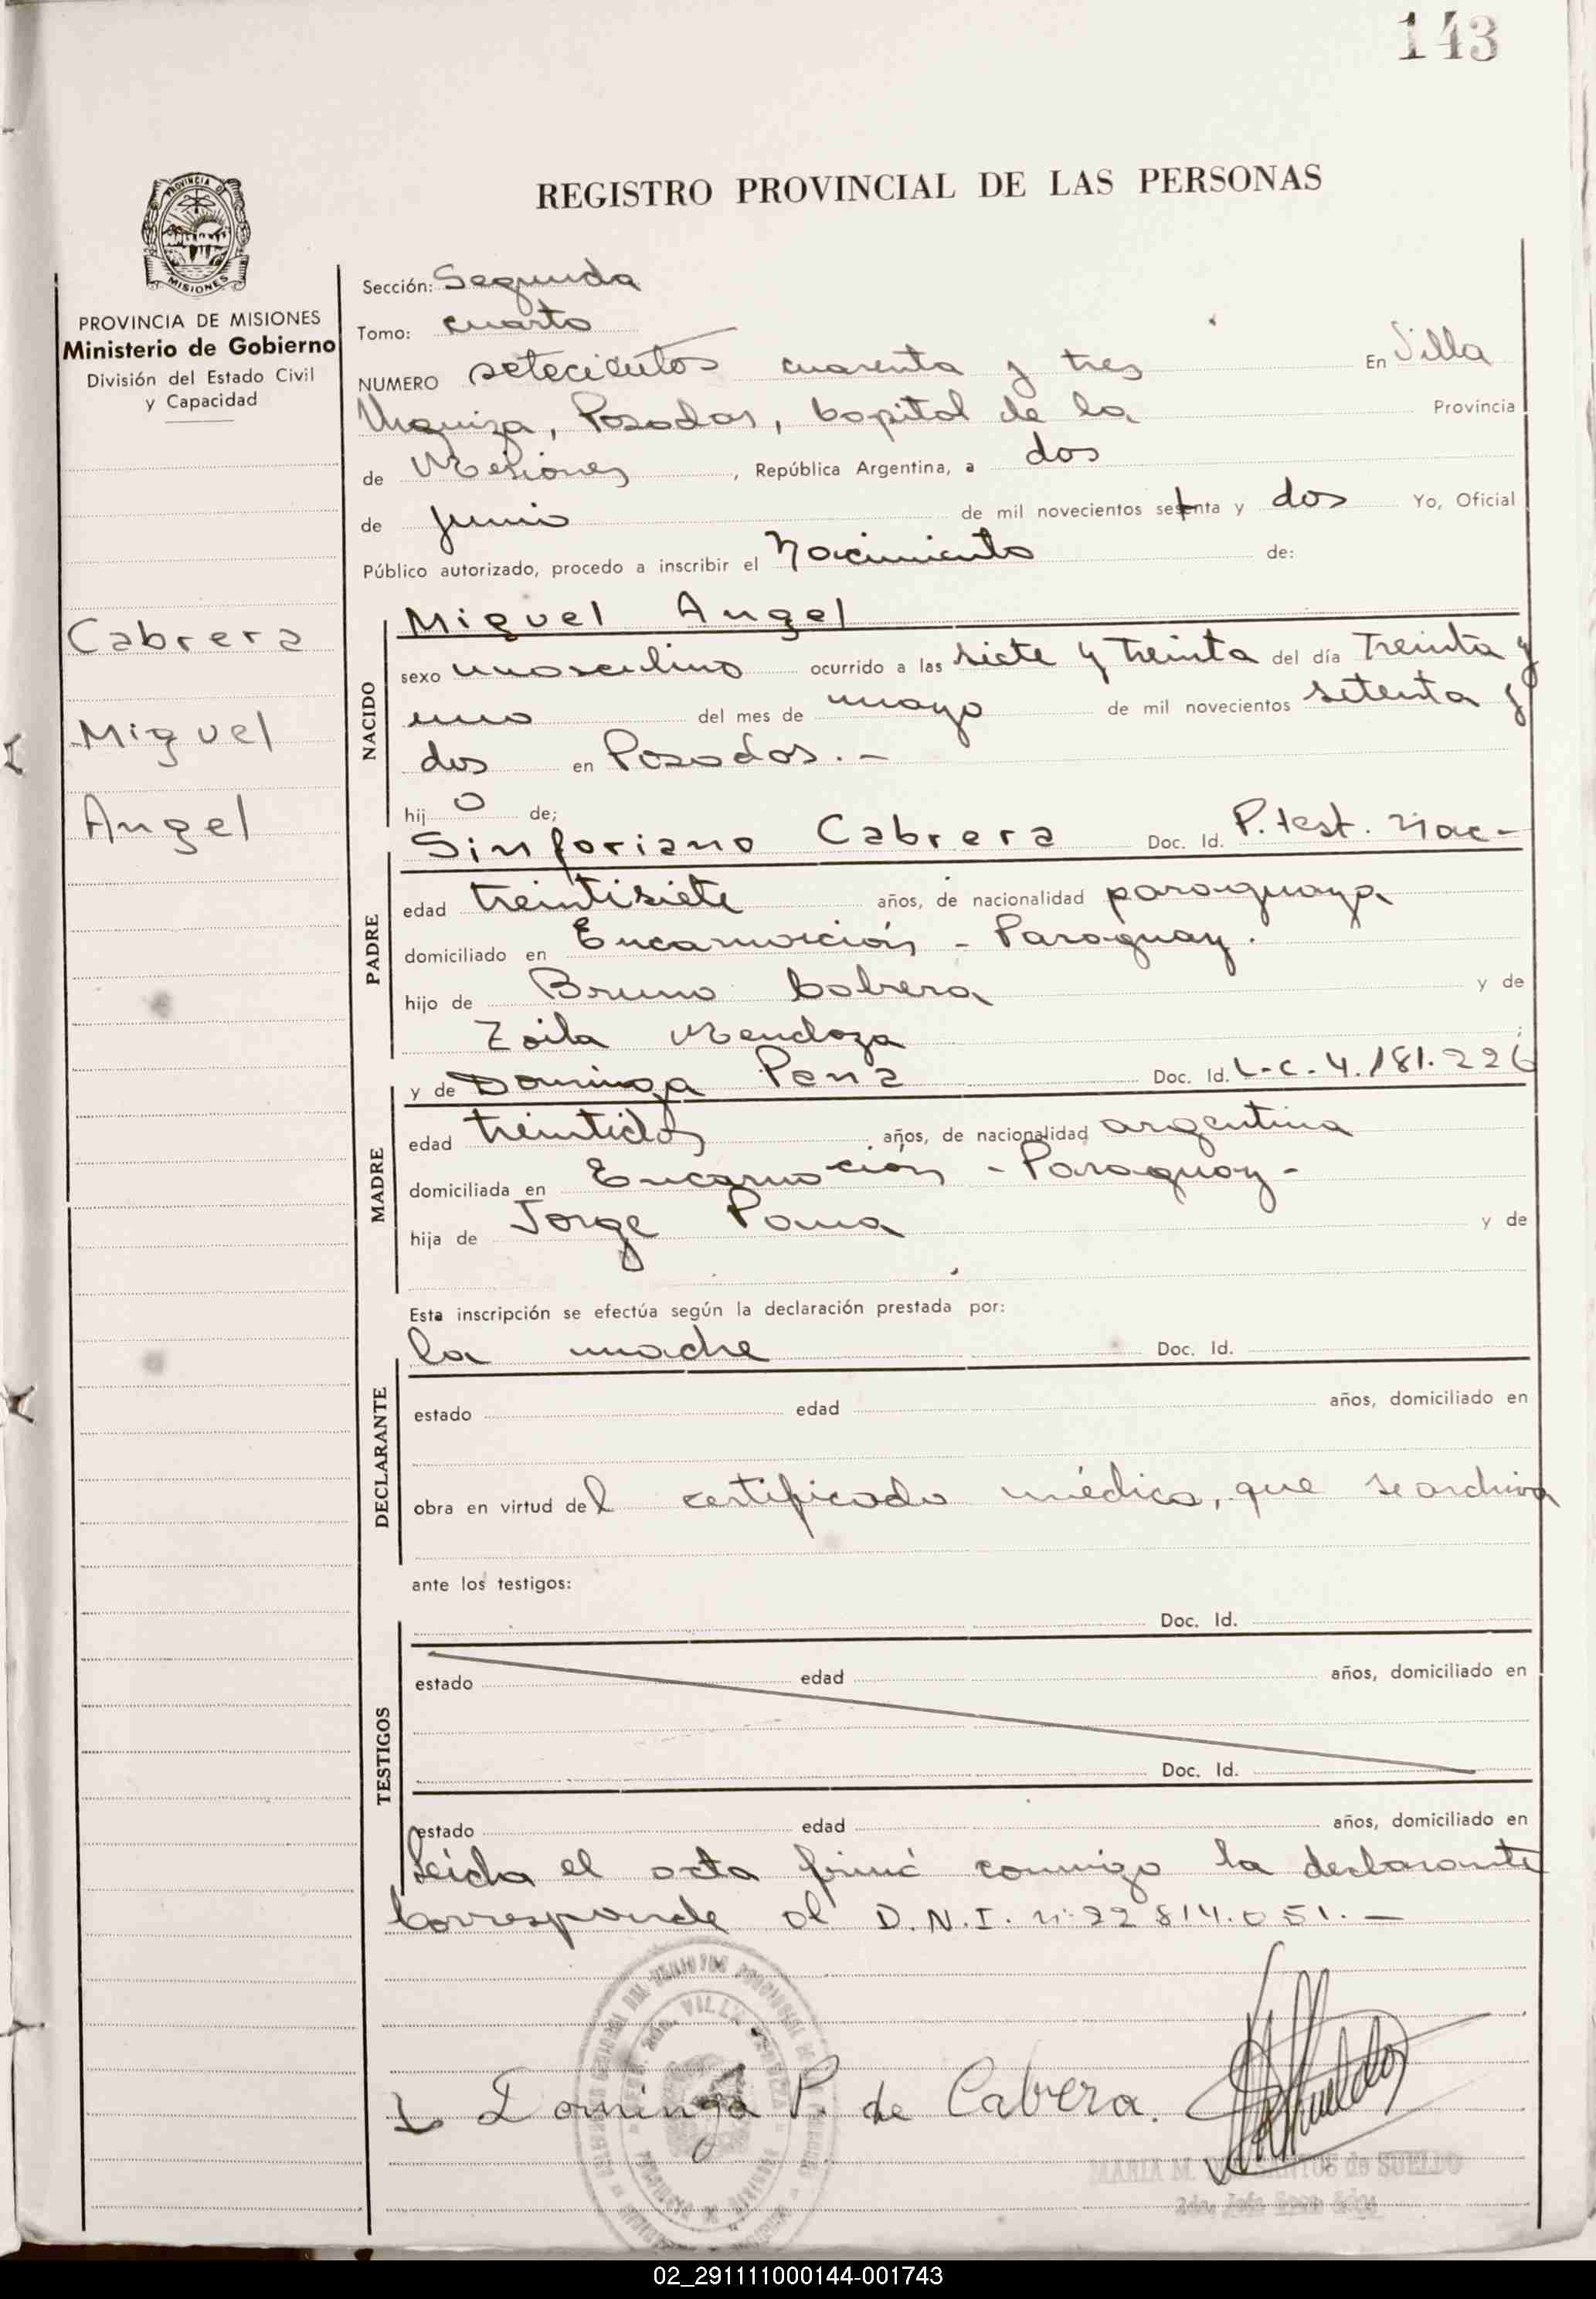 143
REGISTRO PROVINCIAL DE LAS PERSONAS
PROVINCIA DE MISIONES
Ministerio de Gobierno
División del Estado Civil
y Capacidad
Cabrera
Miguel
Angel
Sección: Segunda
Tomo: cuarto
NUMERO setecientos cuarenta y tres En Villa
Urquiza, Posadas, Capital de la Provincia
de Misiones, República Argentina, a dos
de junio de mil novecientos setenta y dos Yo, Oficial
Público autorizado, procedo a inscribir el Nacimiento de:
NACIDO
Miguel Angel
sexo masculino ocurrido a las siete y treinta del día Treinta y
uno del mes de mayo de mil novecientos setenta y
dos en Posadas.-
hijo de;
PADRE
Sinforiano Cabrera Doc. Id. P. test. Nac-
edad treintisiete años, de nacionalidad paraguaya
domiciliado en Encarnación - Paraguay.
hijo de Bruno Cabrera y de
Zoila Mendoza ;
MADRE
y de Dominga Pana Doc. Id. L-C. 4.181.226
edad treintidos años, de nacionalidad argentina
domiciliada en Encarnación - Paraguay-
hija de Jorge Pana y de
Esta inscripción se efectúa según la declaración prestada por:
DECLARANTE
la madre Doc. Id.
estado edad años, domiciliado en
obra en virtud del certificado médico, que se archiva
ante los testigos:
TESTIGOS
Doc. Id.
estado edad años, domiciliado en
Doc. Id.
estado edad años, domiciliado en
Leída el acta firmó conmigo la declarante
Corresponde al D.N.I. n: 22 814.051.-
Dominga P. de Cabrera.
MARIA M. de SUELDO
02_291111000144-001743